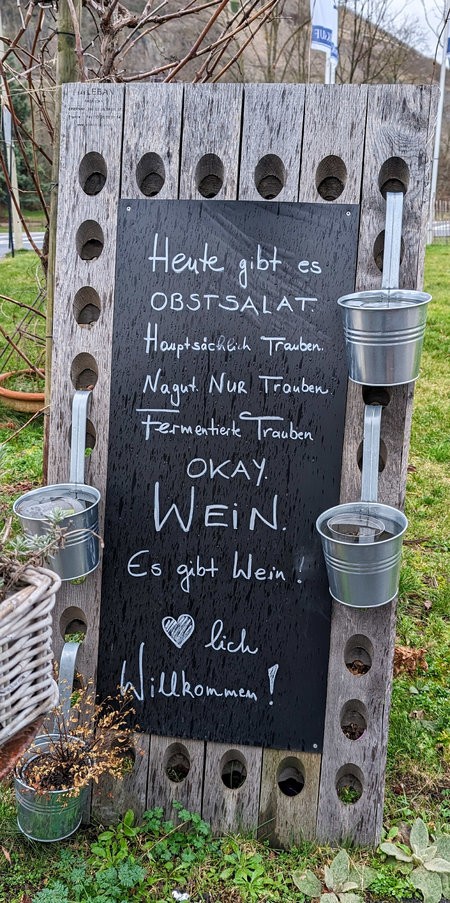 Heute gibt es
OBSTSALAT.
Hauptsächlich Trauben.
Nagut. NUR Trauben.
Fermentierte Trauben
OKAY.
WEIN.
Es gibt Wein!
lich
Willkommen!